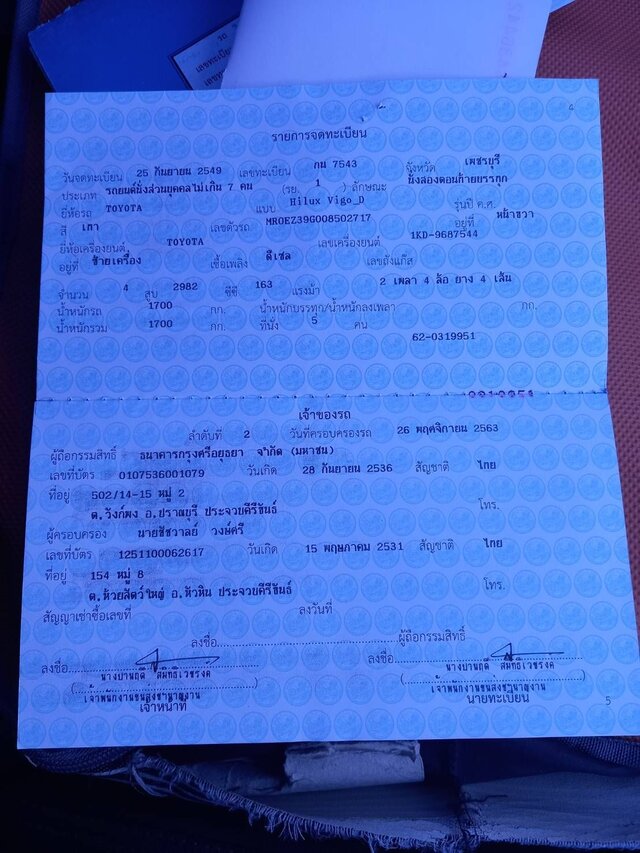 รถ
เลขทะเบียน
4
รายการจดทะเบียน
วันจดทะเบียน 25 กันยายน 2549 เลขทะเบียน กน 7543 จังหวัด เพชรบุรี
ประเภท รถยนต์นั่งส่วนบุคคลไม่เกิน 7 คน (รย. 1 ) ลักษณะ นั่งสองตอนท้ายบรรทุก
ยี่ห้อรถ TOYOTA แบบ Hilux Vigo_D รุ่นปี ค.ศ.
สี เทา เลขตัวรถ MROEZ39G008502717 อยู่ที่ หน้าขวา
ยี่ห้อเครื่องยนต์ TOYOTA เลขเครื่องยนต์ 1KD-9687544
อยู่ที่ ซ้ายเครื่อง เชื้อเพลิง ดีเซล เลขถังแก๊ส
จำนวน 4 สูบ 2982 ซีซี 163 แรงม้า 2 เพลา 4 ล้อ ยาง 4 เส้น
น้ำหนักรถ 1700 กก. น้ำหนักบรรทุก/น้ำหนักลงเพลา กก.
น้ำหนักรวม 1700 กก. ที่นั่ง 5 คน
62-0319951
เจ้าของรถ
ลำดับที่ 2 วันที่ครอบครองรถ 26 พฤศจิกายน 2563
ผู้ถือกรรมสิทธิ์ ธนาคารกรุงศรีอยุธยา จำกัด (มหาชน)
เลขที่บัตร 0107536001079 วันเกิด 28 กันยายน 2536 สัญชาติ ไทย
ที่อยู่ 502/14-15 หมู่ 2
ต.วังก์พง อ.ปราณบุรี ประจวบคีรีขันธ์ โทร.
ผู้ครอบครอง นายชัชวาลย์ วงษ์ศรี
เลขที่บัตร 1251100062617 วันเกิด 15 พฤษภาคม 2531 สัญชาติ ไทย
ที่อยู่ 154 หมู่ 8
ต.ห้วยสัตว์ใหญ่ อ.หัวหิน ประจวบคีรีขันธ์ โทร.
สัญญาเช่าซื้อเลขที่ ลงวันที่
ลงชื่อ ผู้ถือกรรมสิทธิ์
ลงชื่อ ลงชื่อ
เจ้าพนักงานขนส่งชำนาญงาน เจ้าพนักงานขนส่งชำนาญงาน
เจ้าหน้าที่ นายทะเบียน
5